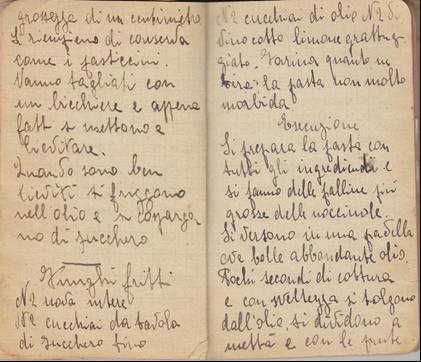 grossezza di un centimetro
Si riempiono di conserva
come i pasticcini.
Vanno tagliati con
un bicchiere e appena
fatt si mettono a
lievitare.
Quando sono ben
lieviti si friggono
nell'olio e si cosparga
no di zucchero
Funghi fritti
N2 uova intere
N2 cucchiai da tavola
di zucchero fino
N2 cucchiai di olio N2 di
vino cotto limone grattug
giato. Farina quanto ne
tira: la pasta non molto
morbida
Esecuzione
Si prepara la pasta con
tutti gli ingredienti e
si fanno delle palline più
grosse delle nocciuole.
Si versono in una padella
ove bolle abbondante olio.
Pochi secondi di cottura
e con sveltezza si tolgono
dall'olio, si dividono a
mettà e con le punte